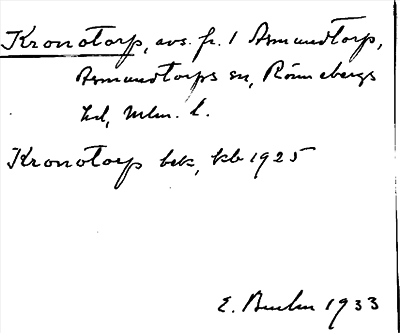 Kronotorp, avs. fr. 1 Asmundtorp,
Asmundtorps sn, Rönnebergs
hd, Mlm. l.
Kronotorp bek, kb 1925
E. 1933